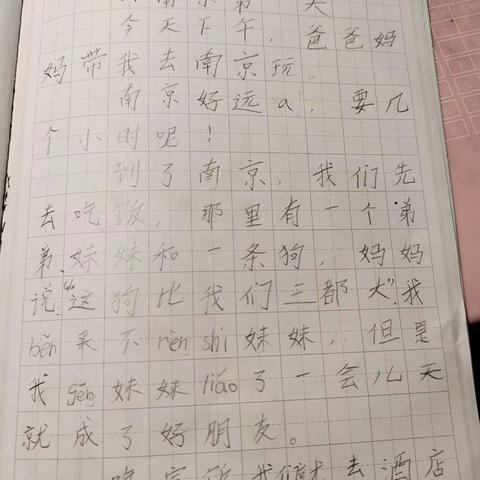 南京第 天
今天下午，爸爸妈
妈带我去南京玩。
南京好远a，要几
个小时呢！
到了南京，我们先
去吃饭，那里有一个弟
弟、妹妹和一条狗，妈妈
说：“这狗比我们三都大”。我
běn来不rèn shi妹妹，但是
我gēn妹妹liáo了一会儿天
就成了好朋友。
吃完饭我们就去酒店